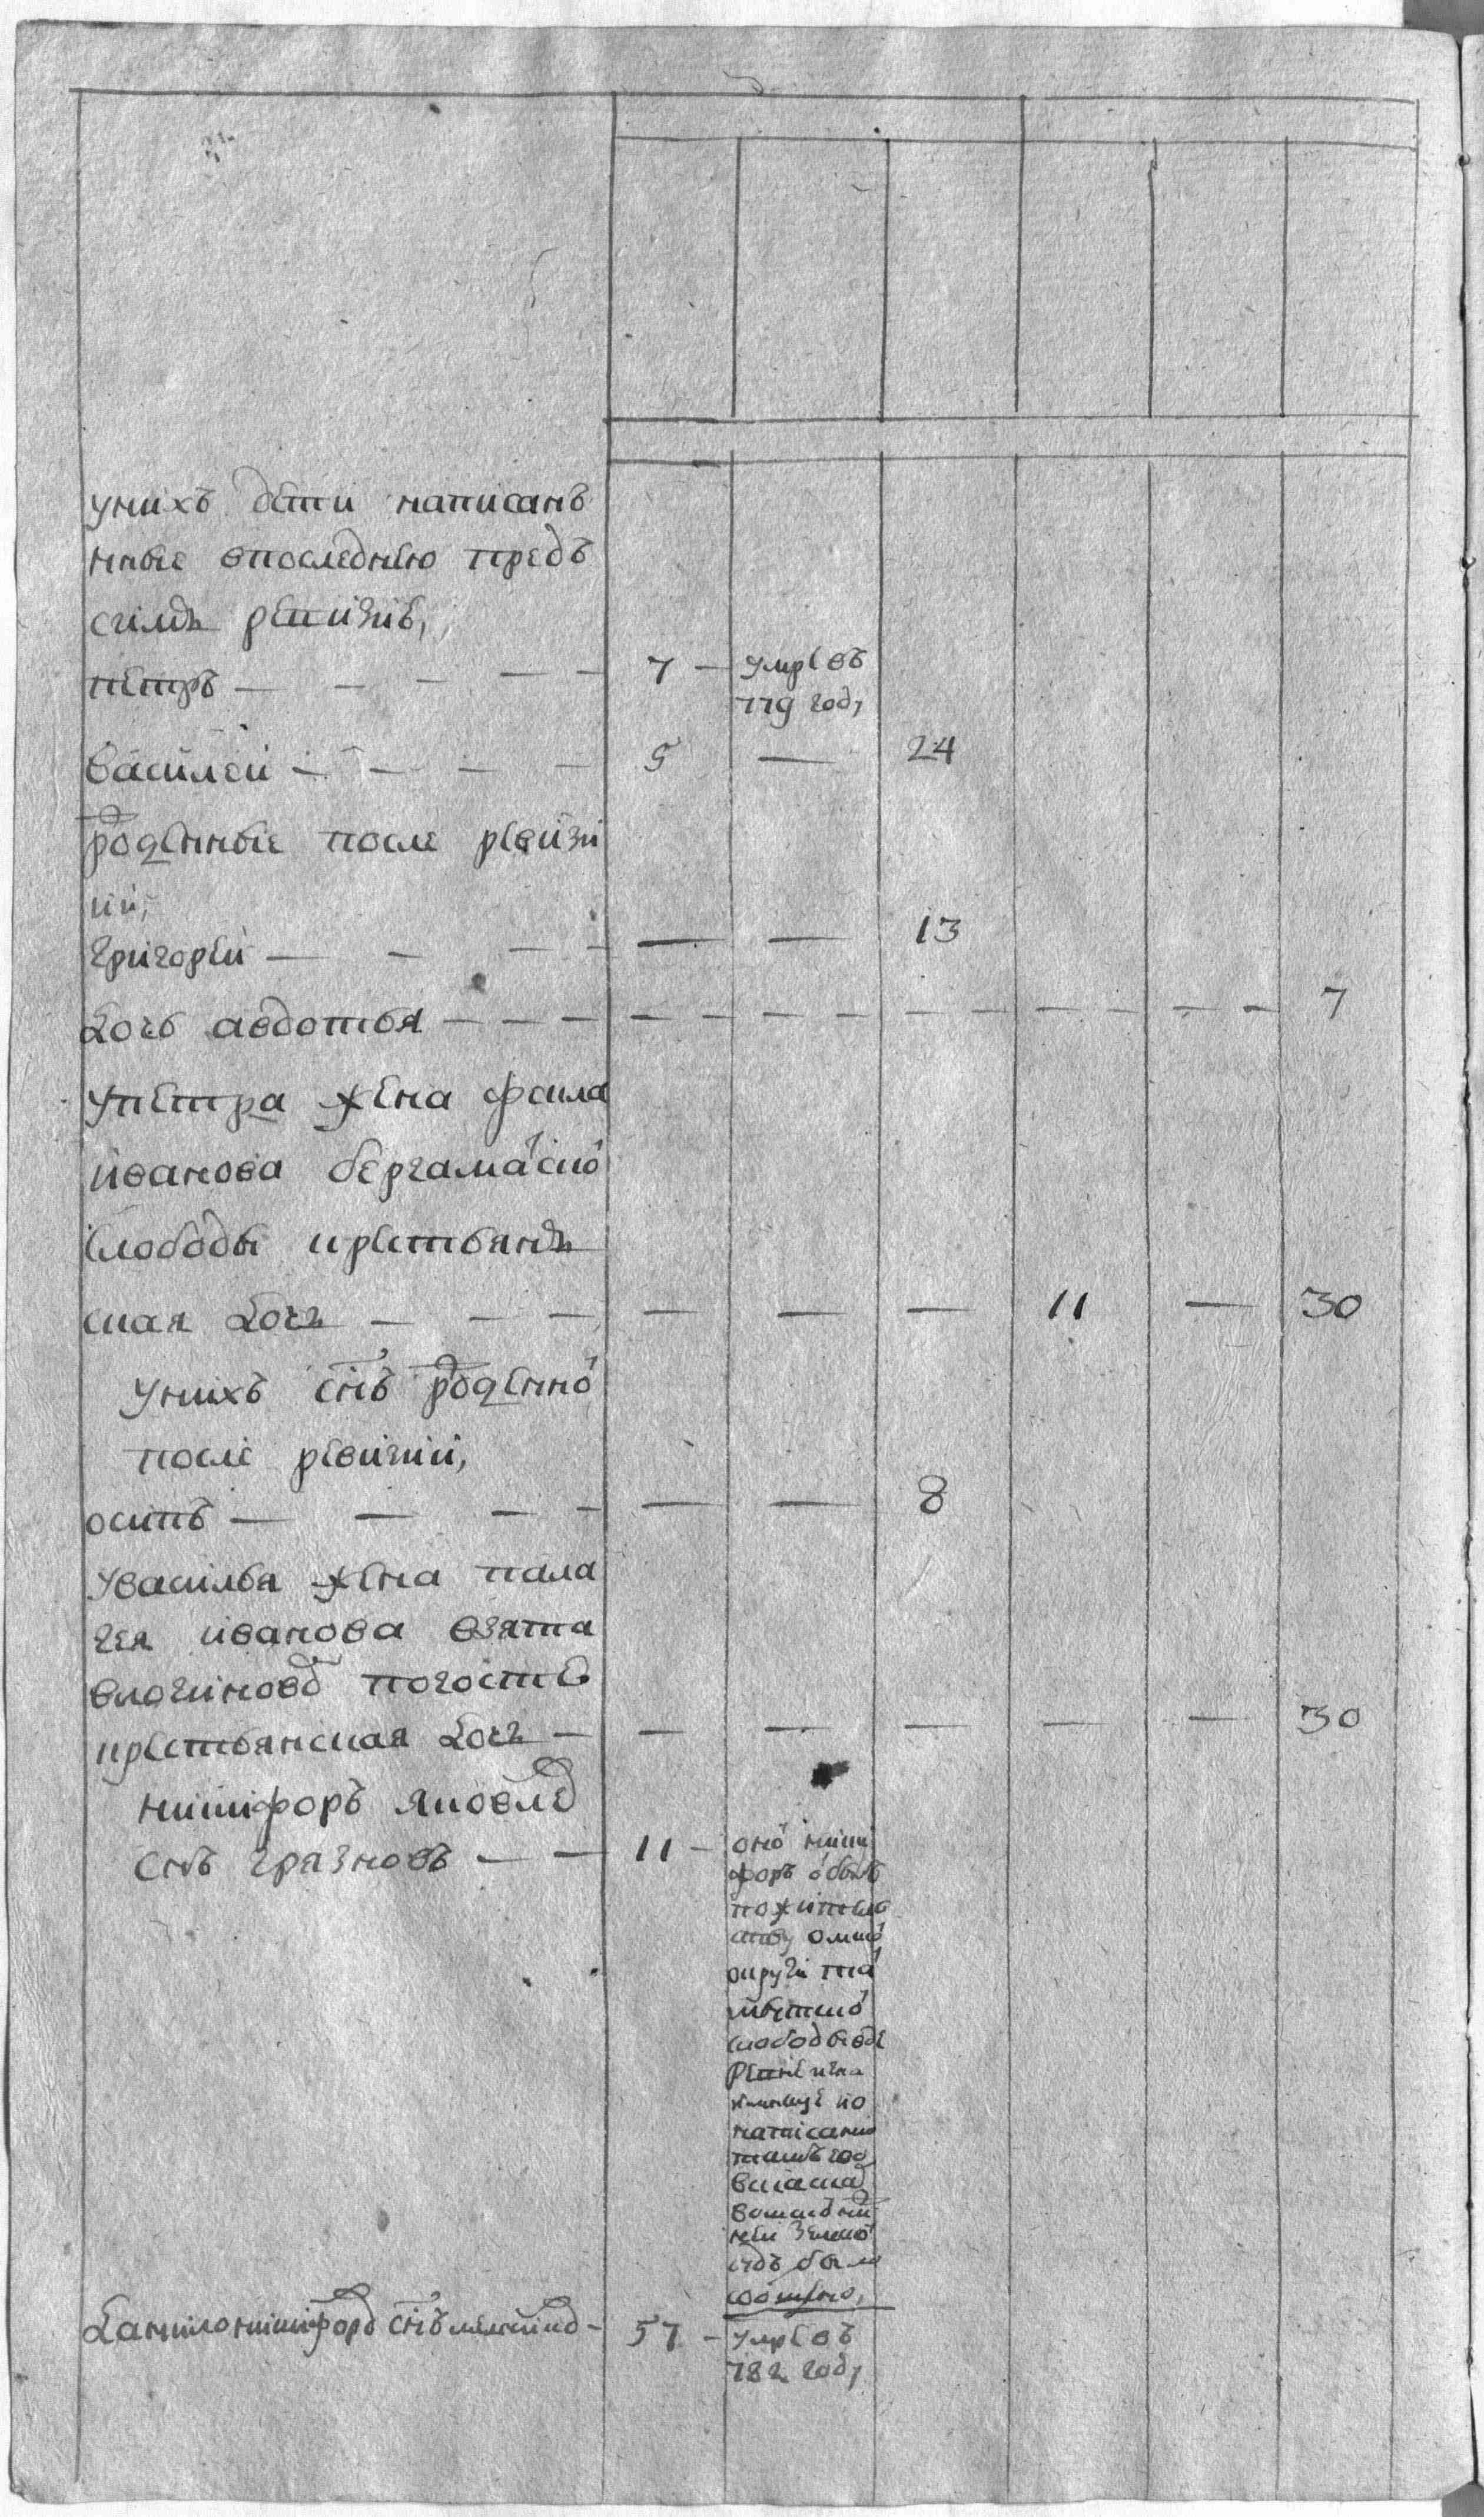 унихъ дети написанъ
ные впоследнею предъ
симъ ревизиѣ,
петръ — — — — — 7 — умре въ
779 год,
василеи — — — — 5 — 24
рожденные после ревизи
ии,
григореи — — — — — — 13
дочь авдотья — — — — — — — — — — — — 7
упетра жена фекла
иванова бергамацкой
слободы крестьянъ
ская дочь — — — — — — 11 — 30
унихъ снъ рожденной
после ревизии,
осипъ — — — — — — 8
увасилья жена пала
гея иванова взята
влогиновѣ погосте
крестьянская дочь — — — — — — 30
никифоръ яковлев
снъ грязновъ — — 11 — оной ники
форъ
по жительс
тву омской
округи та
слободы
написано
земской
судъ было
данило никифоров снъ — 57 — умре въ
782 год,